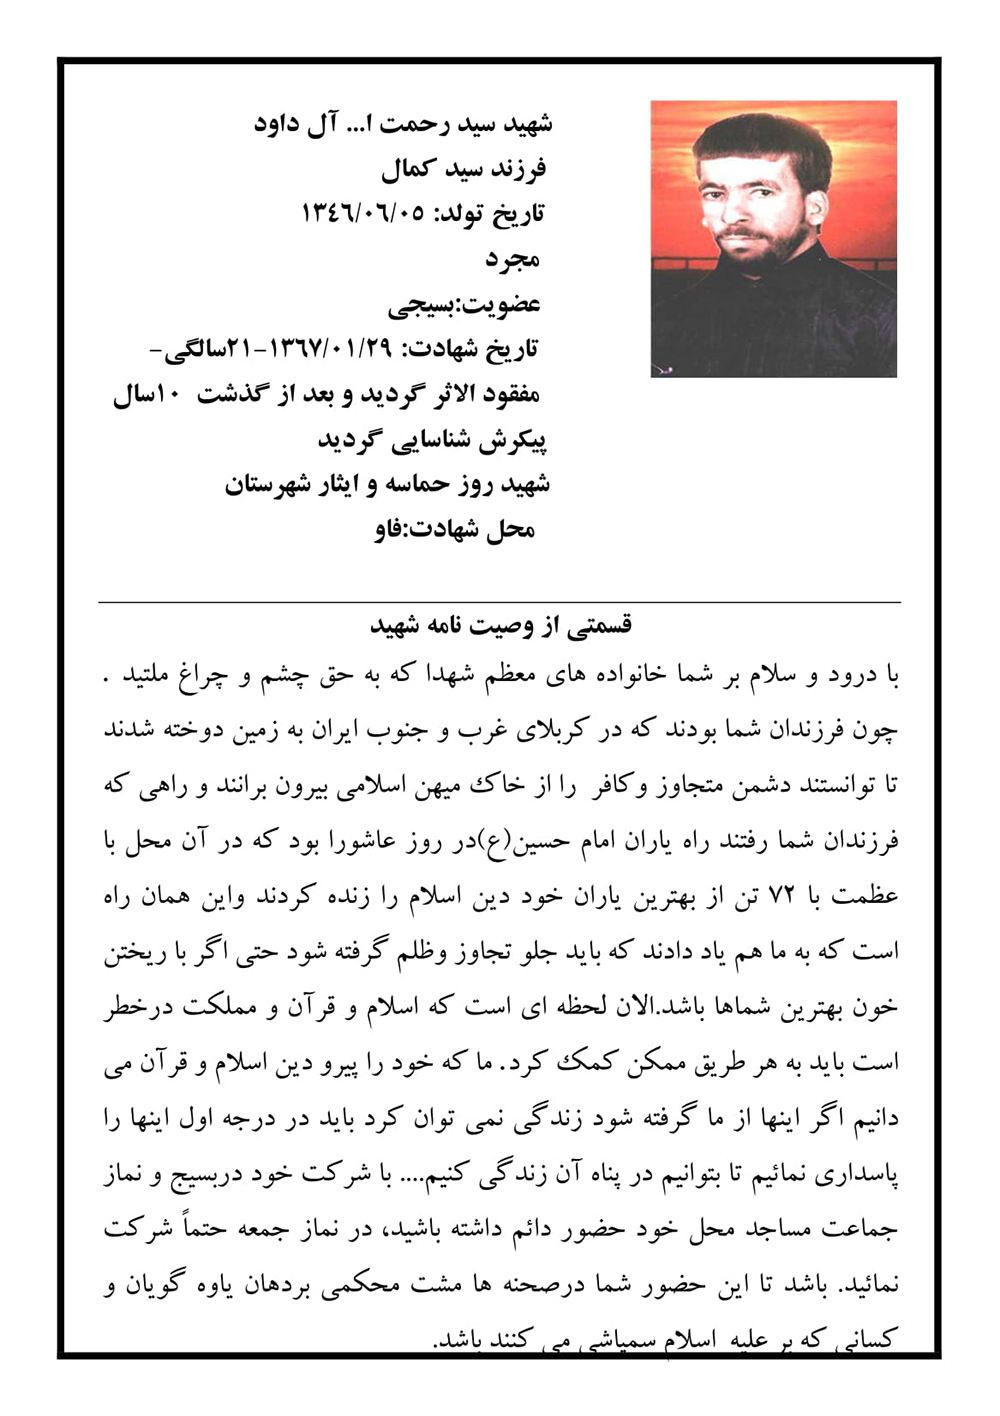 شهید سید رحمت ا... آل داود
فرزند سید کمال
تاریخ تولد: ۱۳٤٦/۰٦/۰٥
مجرد
عضویت:بسیجی
تاریخ شهادت: ۱۳٦۷/۰۱/۲۹-۲۱سالگی-
مفقود الاثر گردید و بعد از گذشت ۱۰سال
پیکرش شناسایی گردید
شهید روز حماسه و ایثار شهرستان
محل شهادت:فاو
قسمتی از وصیت نامه شهید
با درود و سلام بر شما خانواده های معظم شهدا که به حق چشم و چراغ ملتید .
چون فرزندان شما بودند که در کربلای غرب و جنوب ایران به زمین دوخته شدند
تا توانستند دشمن متجاوز وکافر را از خاک میهن اسلامی بیرون برانند و راهی که
فرزندان شما رفتند راه یاران امام حسین(ع)در روز عاشورا بود که در آن محل با
عظمت با ۷۲ تن از بهترین یاران خود دین اسلام را زنده کردند واین همان راه
است که به ما هم یاد دادند که باید جلو تجاوز وظلم گرفته شود حتی اگر با ریختن
خون بهترین شماها باشد.الان لحظه ای است که اسلام و قرآن و مملکت درخطر
است باید به هر طریق ممکن کمک کرد. ما که خود را پیرو دین اسلام و قرآن می
دانیم اگر اینها از ما گرفته شود زندگی نمی توان کرد باید در درجه اول اینها را
پاسداری نمائیم تا بتوانیم در پناه آن زندگی کنیم.... با شرکت خود دربسیج و نماز
جماعت مساجد محل خود حضور دائم داشته باشید، در نماز جمعه حتماً شرکت
نمائید. باشد تا این حضور شما درصحنه ها مشت محکمی بردهان یاوه گویان و
کسانی که بر علیه اسلام سمپاشی می کنند باشد.